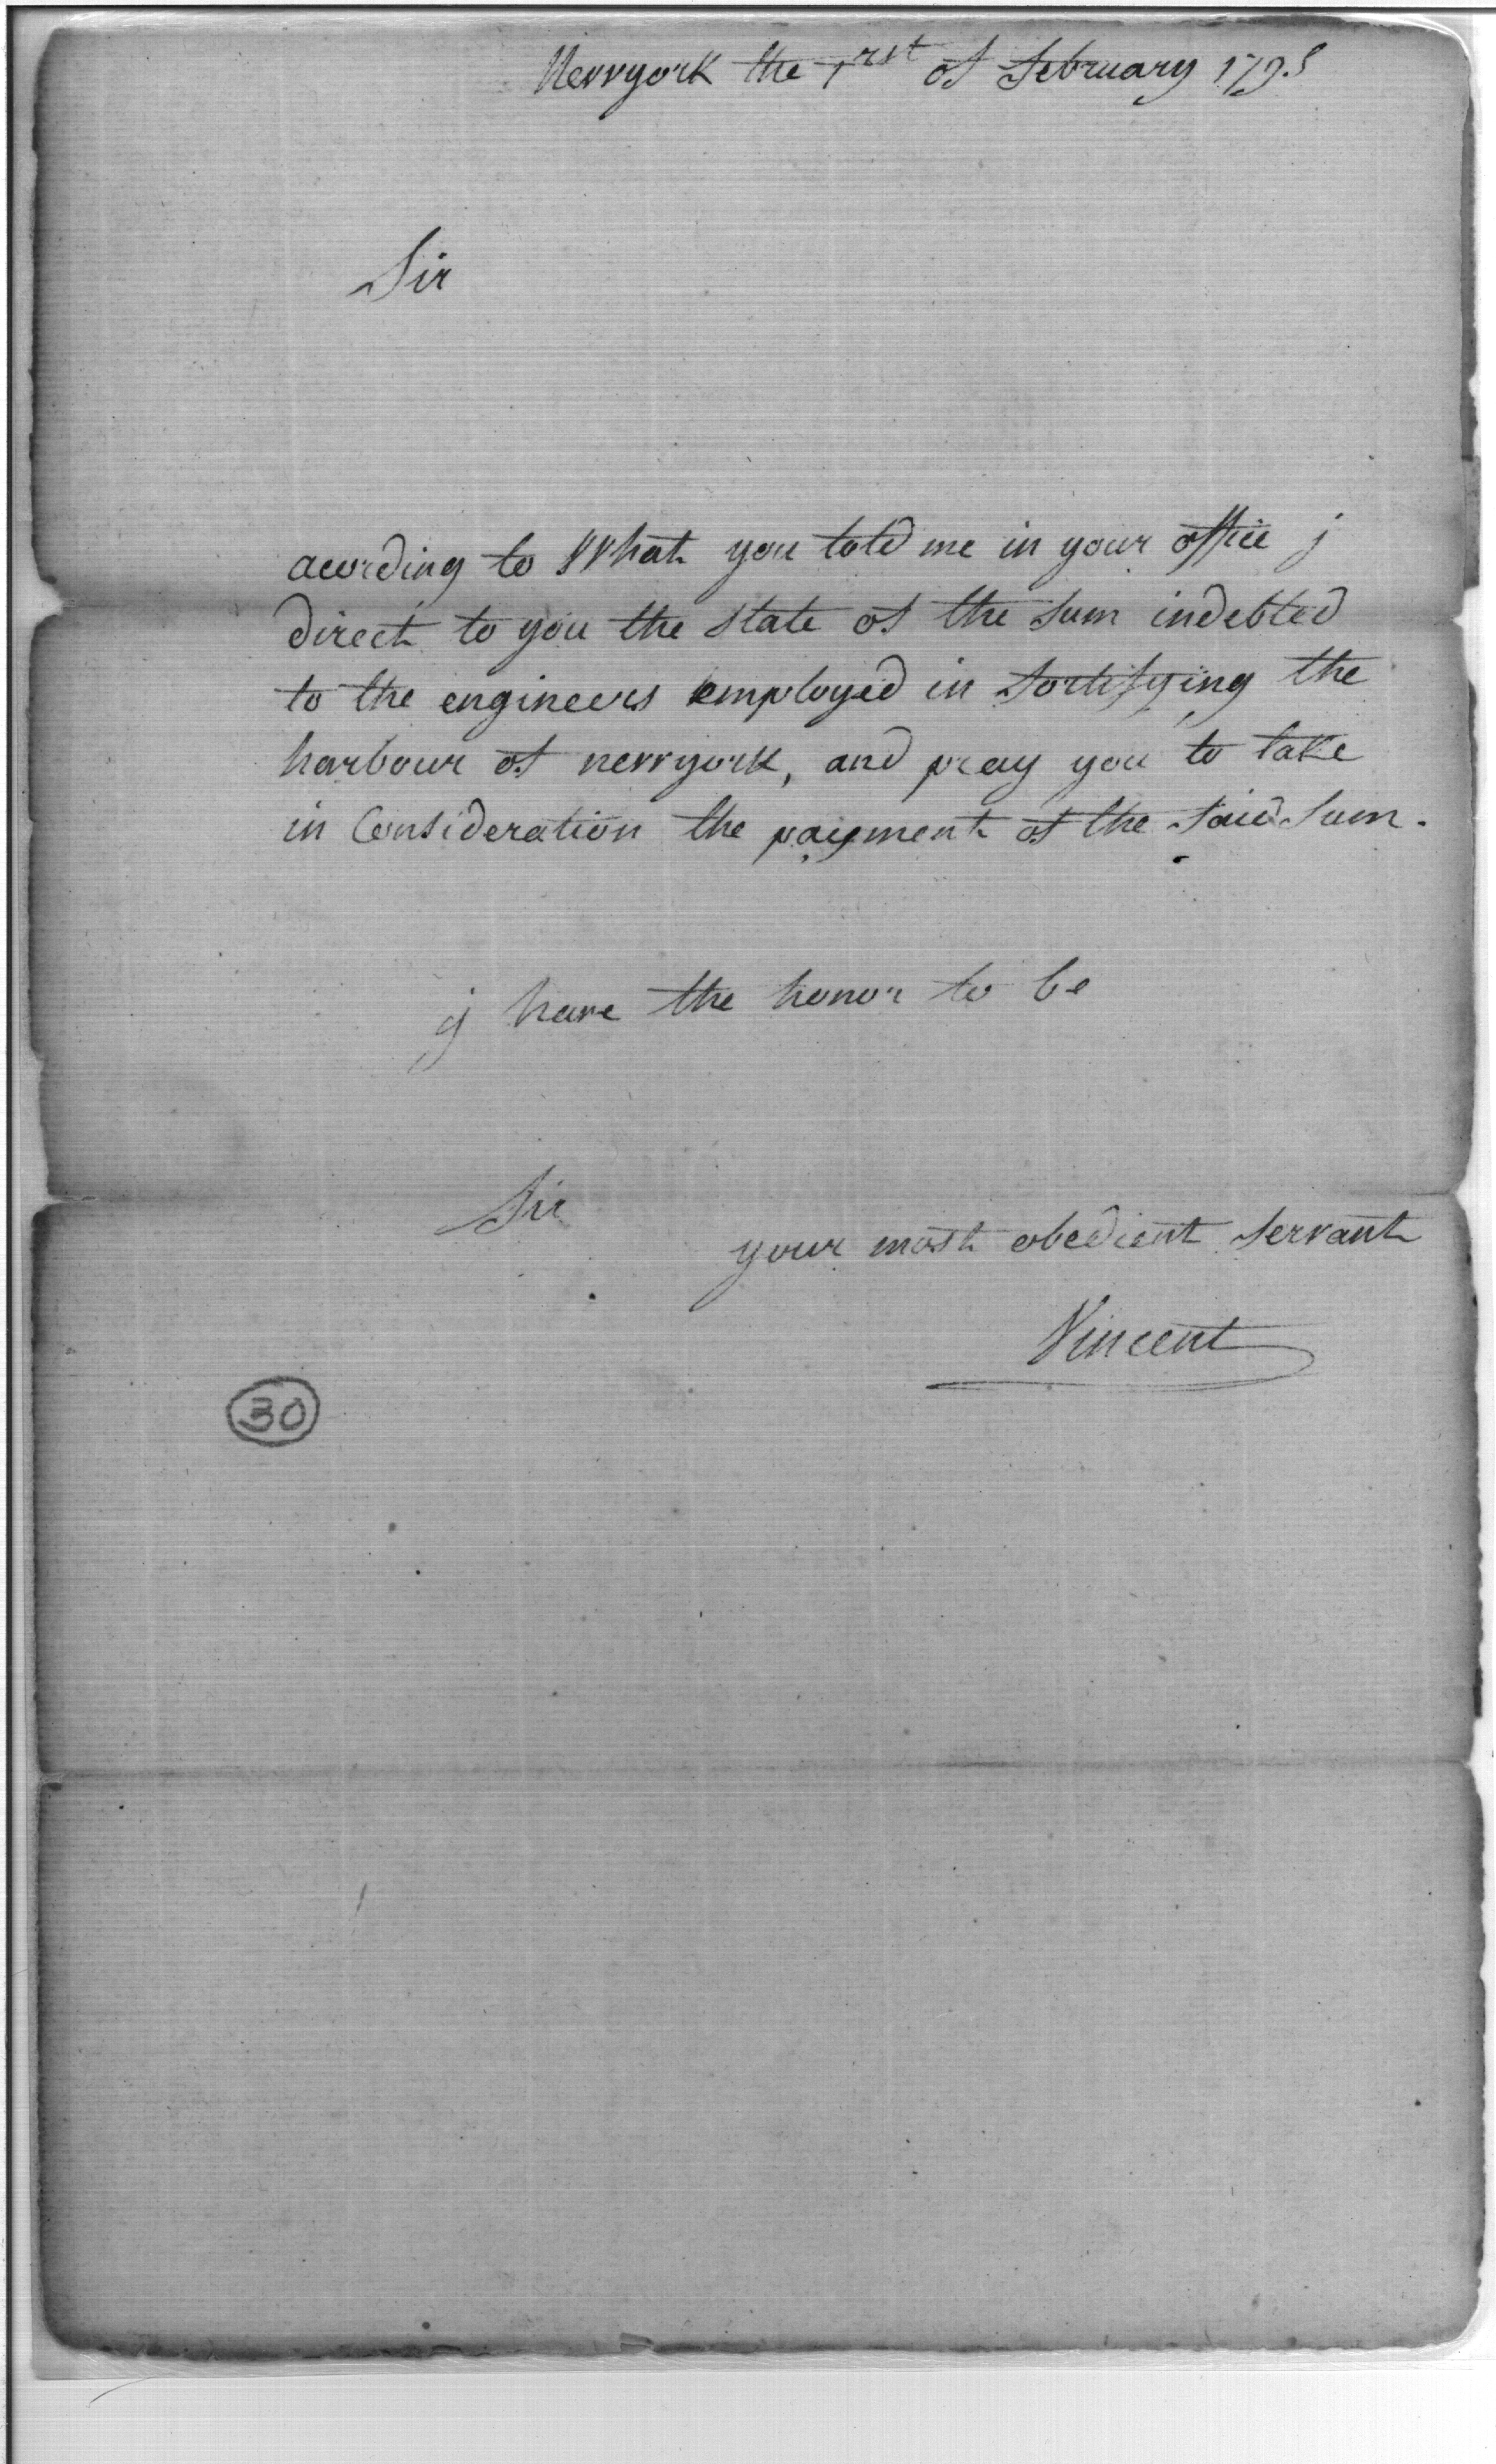 Newyork the 1rst of February 1795
Sir
acording to What you told me in your office j
direct to you the state of the sum indebted
to the engineers employed in fortifying the
harbour of newyork, and pray you to take
in Consideration the payment of the said sum.
j have the honor to be
Sir
your most obedient servant
Vincent
30